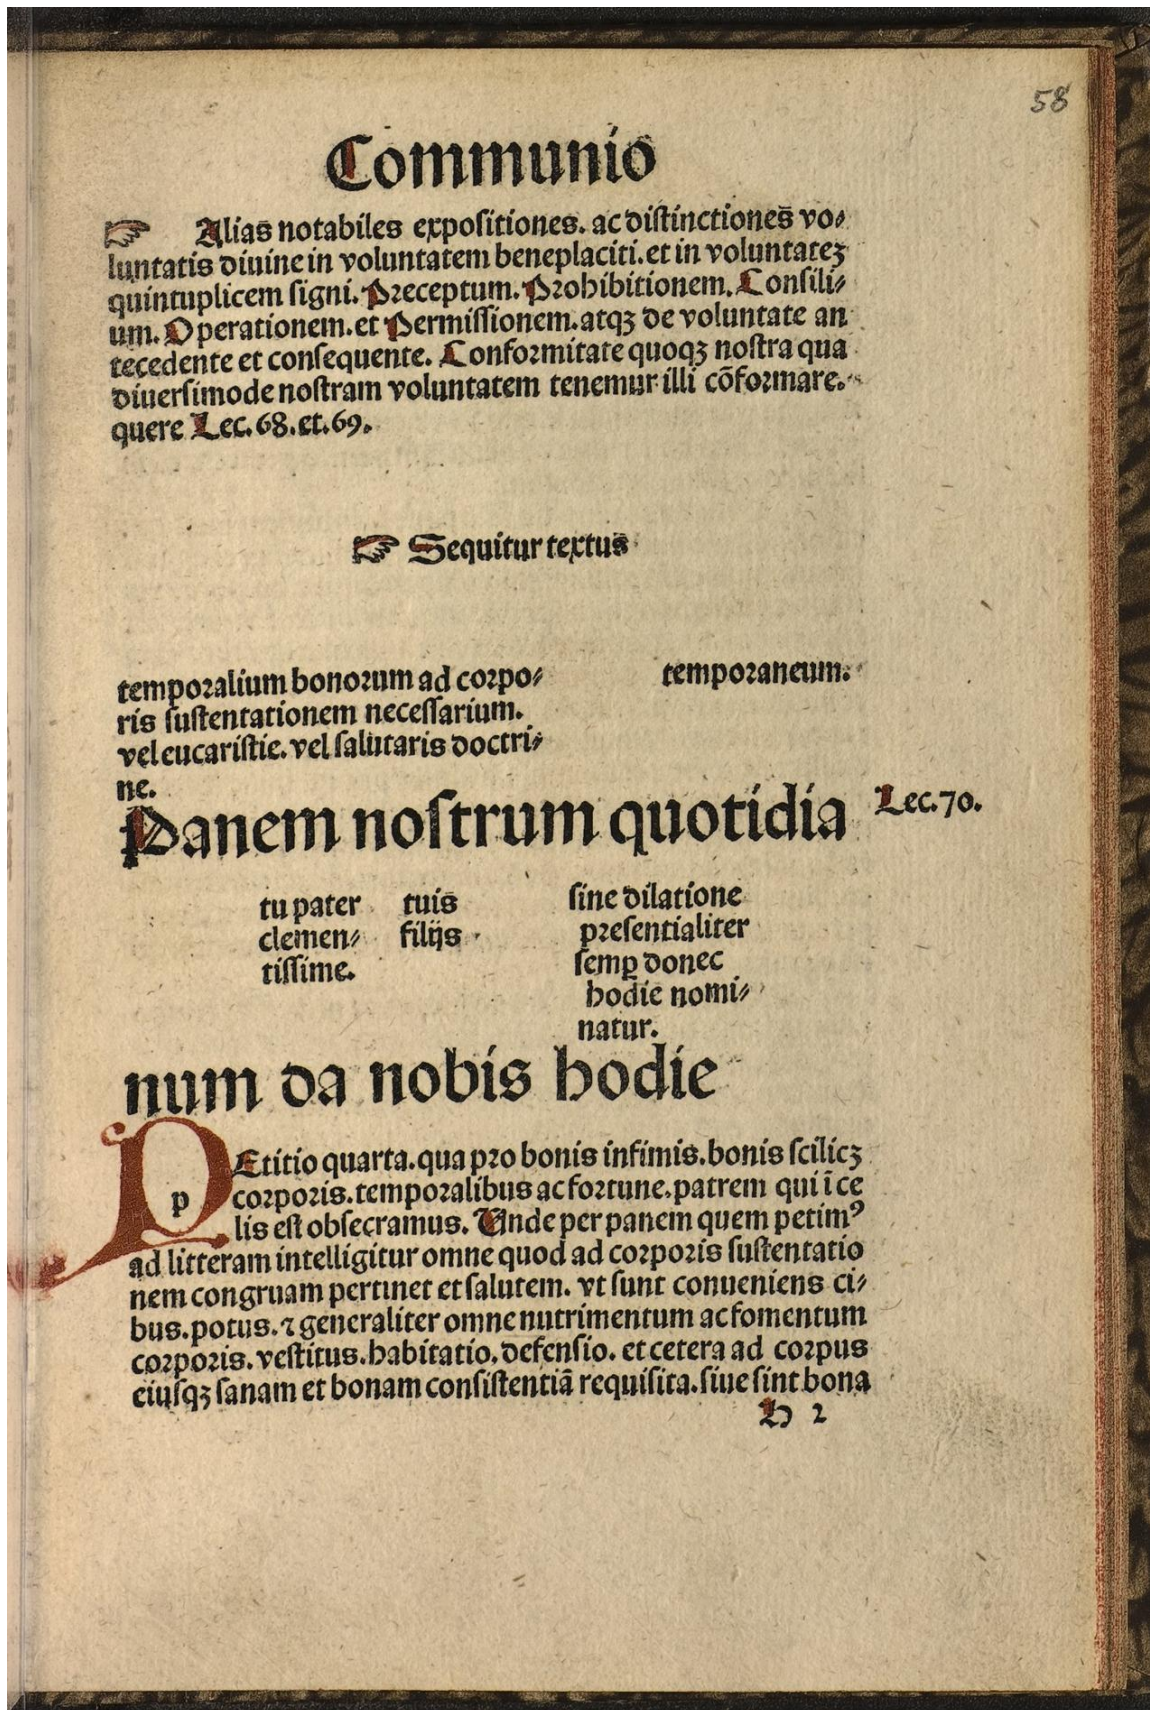 58
Communio
☞ Alias notabiles expositiones. ac distinctiones vo⸗
luntatis diuine in voluntatem beneplaciti. et in voluntateʒ
quintuplicem signi. Preceptum. Prohibitionem. Consili⸗
um. Operationem. et Permissionem. atqʒ de voluntate an
tecedente et consequente. Conformitate quoqʒ nostra qua
diuersimode nostram voluntatem tenemur illi cõformare.
quere Lec. 68. et. 69.
☞ Sequitur textus
temporalium bonorum ad corpo⸗ temporaneum.
ris sustentationem necessarium.
vel eucaristie. vel salutaris doctri⸗
ne.
Panem nostrum quotidia Lec. 70.
tu pater tuis sine dilatione
clemen⸗ filijs presentialiter
tissime. semꝑ donec
hodie nomi⸗
natur.
num da nobis hodie
PEtitio quarta. qua pro bonis infimis. bonis scilicʒ
p corporis. temporalibus ac fortune. patrem qui ī ce
lis est obsecramus. Unde per panem quem petimꝰ
ad litteram intelligitur omne quod ad corporis sustentatio
nem congruam pertinet et salutem. vt sunt conueniens ci⸗
bus. potus. ⁊ generaliter omne nutrimentum ac fomentum
corporis. vestitus. habitatio. defensio. et cetera ad corpus
eiusqʒ sanam et bonam consistentiã requisita. siue sint bona
H 2